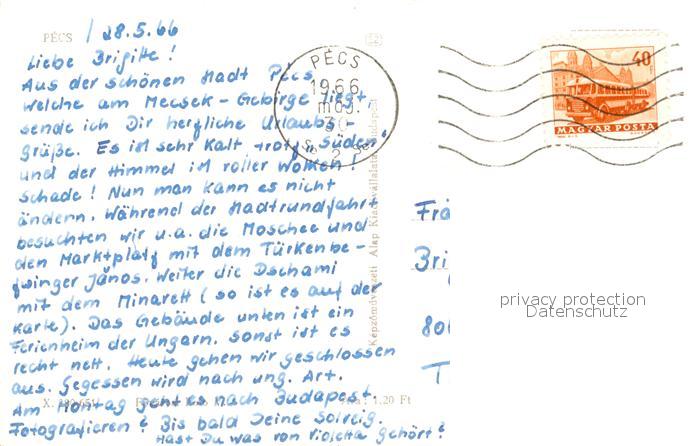 PÉCS / 28.5.66
Liebe Brigitte!
Aus der schönen Stadt Pécs,
welche am Mecsek-Gebirge liegt
sende ich Dir herzliche Urlaubs-
grüße. Es ist sehr kalt trotz „Süden"
und der Himmel ist voller Wolken!
Schade! Nun man kann es nicht
ändern. Während der Stadtrundfahrt
besuchten wir u.a. die Moschee und
den Marktplatz mit dem Türkenbe-
zwinger János. Weiter die Dschami
mit dem Minarett (so ist es auf der
Karte). Das Gebäude unten ist ein
Ferienheim der Ungarn. Sonst ist es
recht nett. Heute gehen wir geschlossen
aus. Gegessen wird nach ung. Art.
Am Montag geht es nach Budapest.
Fotografieren? Bis bald Deine Solveig.
Hast Du was von Violetta gehört?
1,20 Ft
Képzőművészeti Alap Kiadóvállalata, Budapest
PÉCS
1966
MÁJ.
30
40
MAGYAR POSTA
Frä
Bri
801
T
privacy protection
Datenschutz